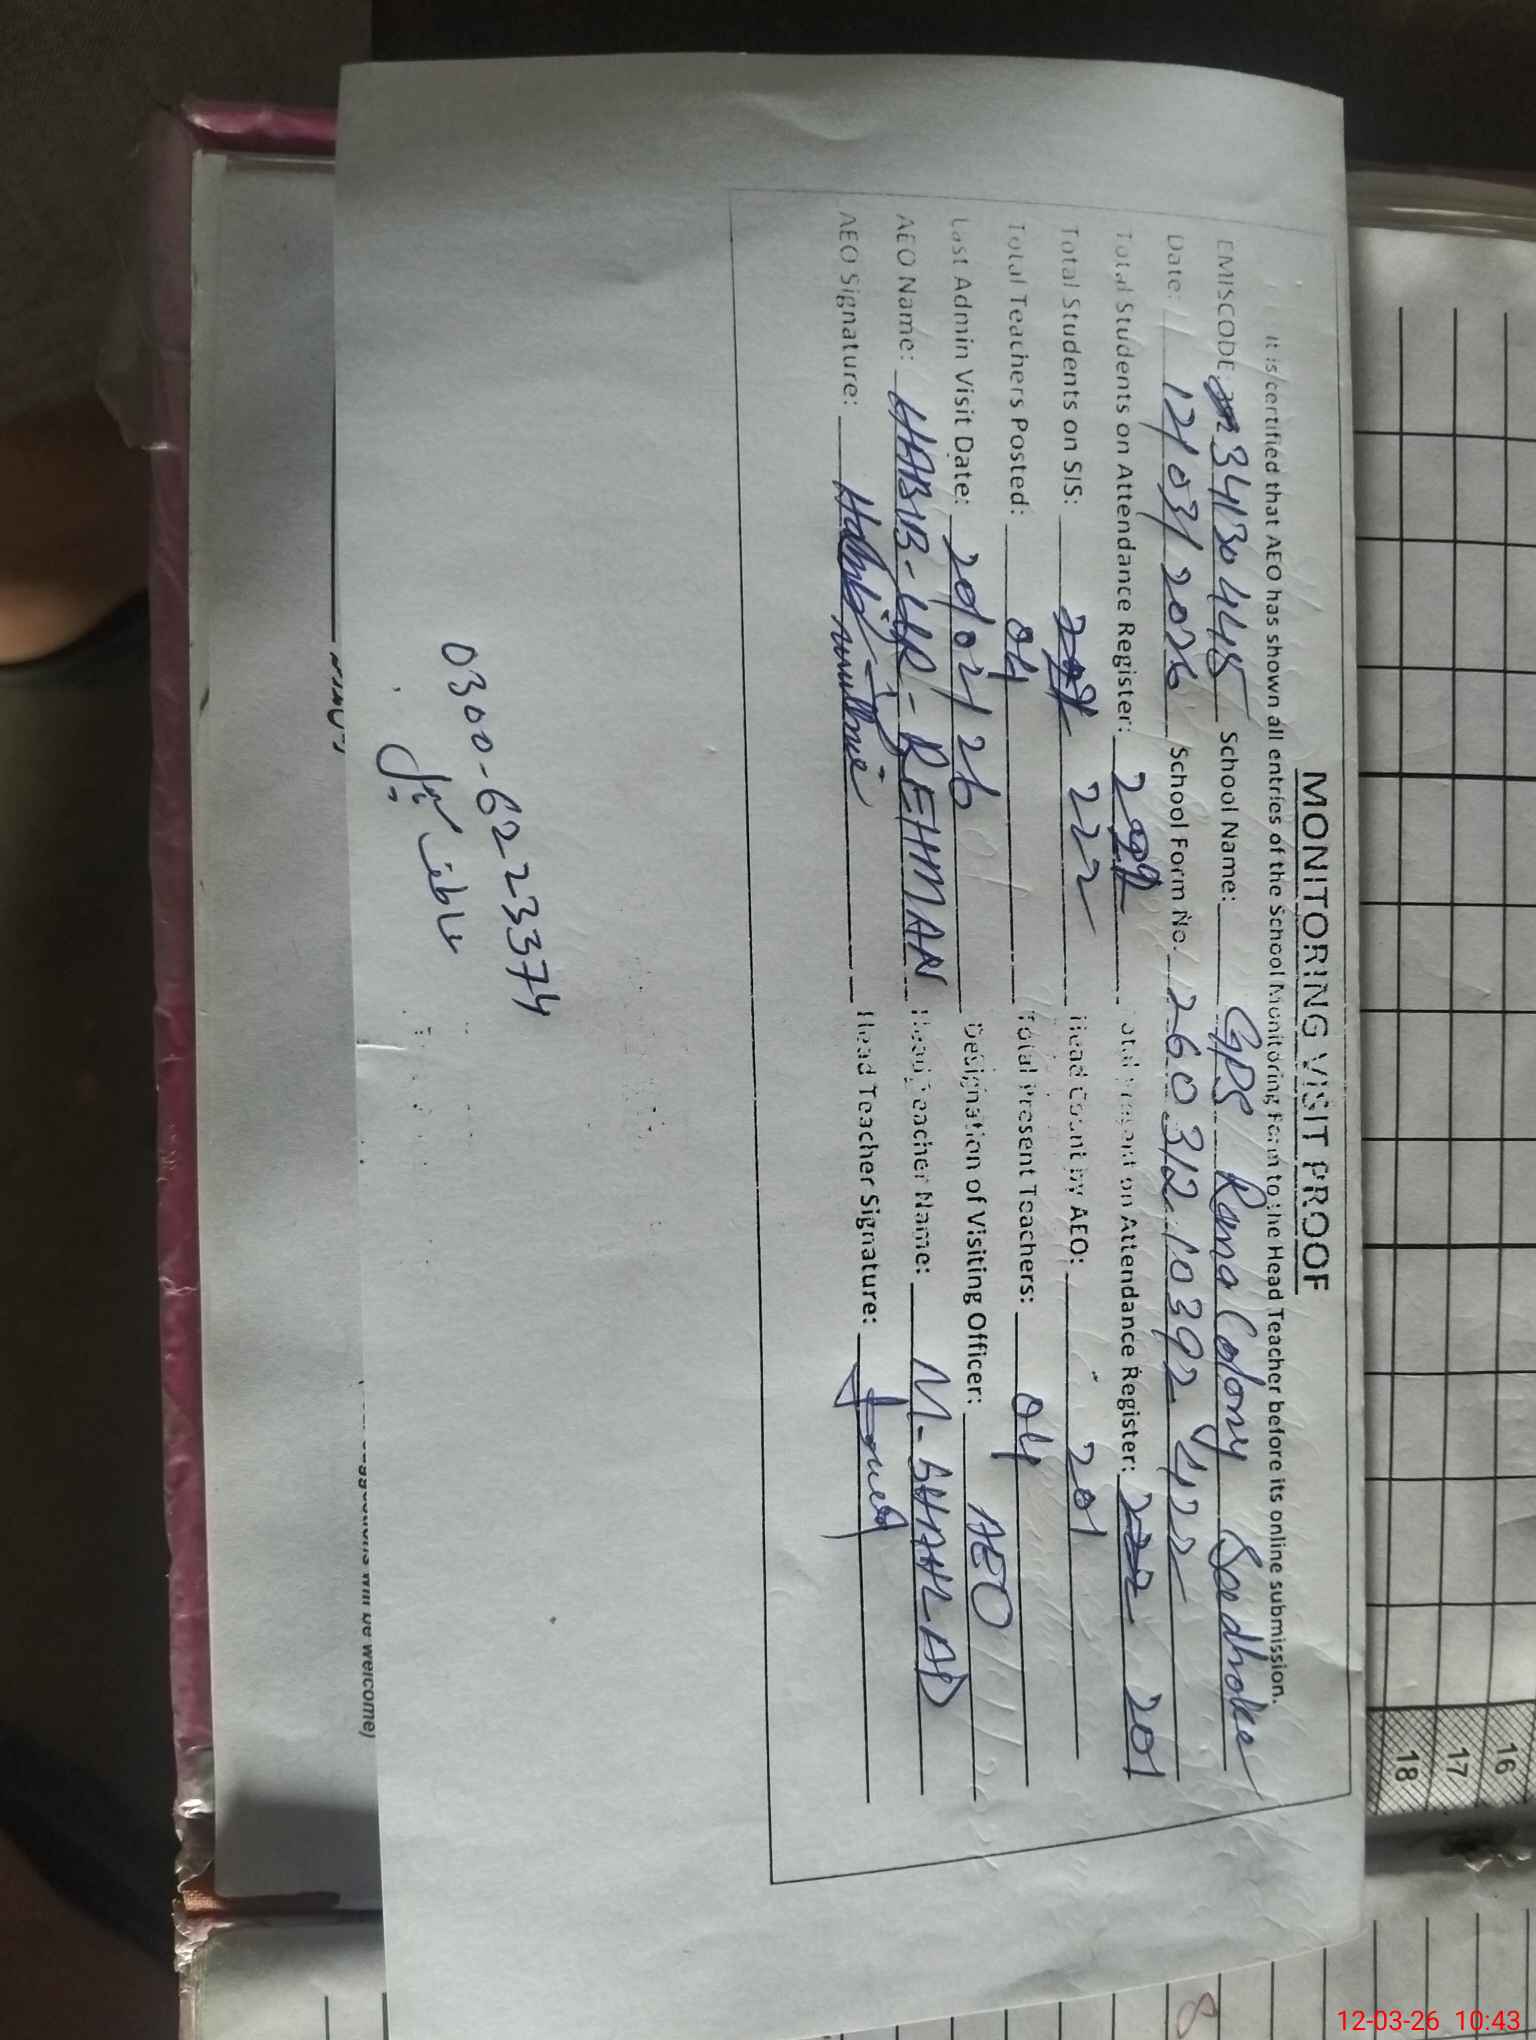 MONITORING VISIT PROOF
It is certified that AEO has shown all entries of the School Monitoring Form to the Head Teacher before its online submission.
EMISCODE 34130445 School Name: GPS Rana Colony Sadhoke
Date: 12/03/2026 School Form No. 260312 10392 422
Total Students on Attendance Register: 222 Total Present on Attendance Register: 201
Total Students on SIS: 222 Head Count by AEO: 201
Total Teachers Posted: 04 Total Present Teachers: 04
Last Admin Visit Date: 20/02/26 Designation of Visiting Officer: AEO
AEO Name: HABIB-UR-REHMAN Head Teacher Name: M. SHAHZAD
AEO Signature: Head Teacher Signature:
0300-6223374
will be welcome)
16
17
18
8
12-03-26 10:43